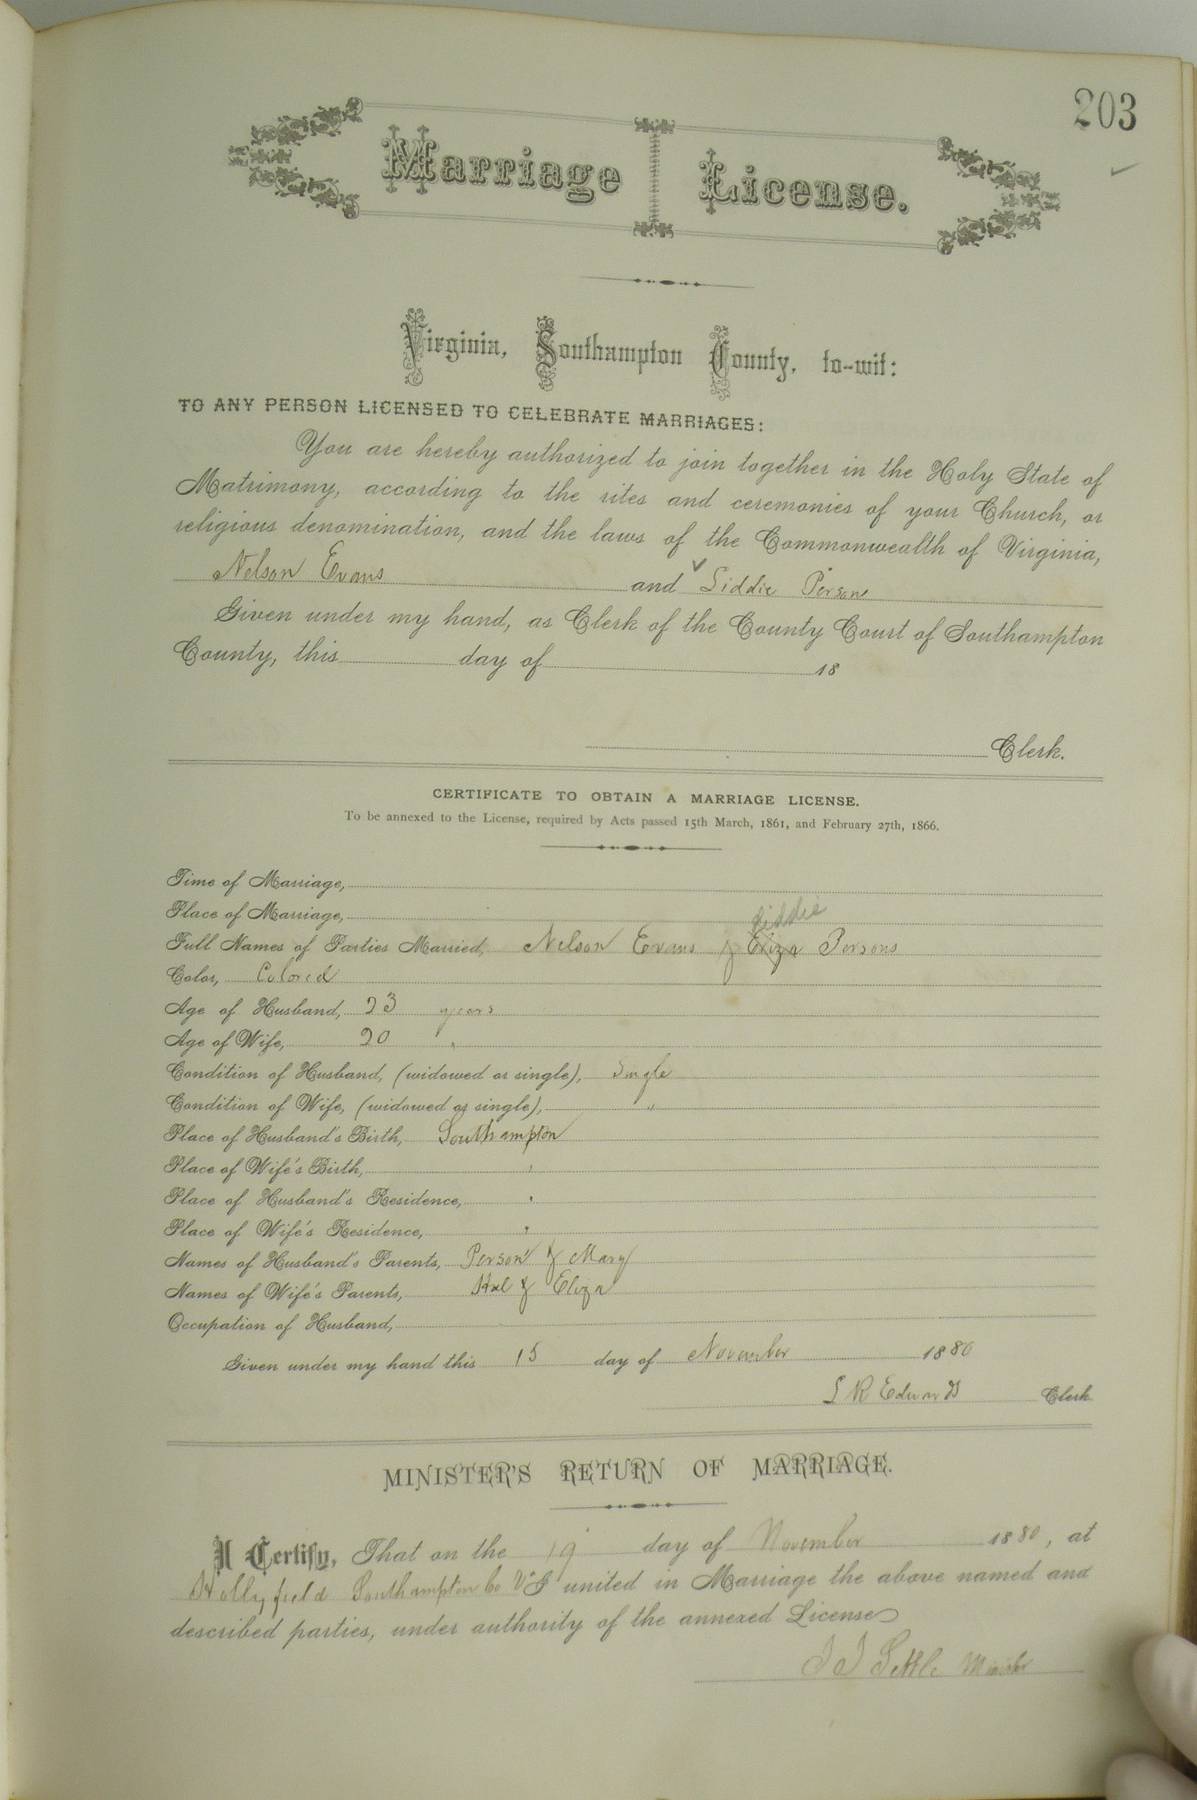 203
Marriage License.
Virginia, Southampton County, to-wit:
TO ANY PERSON LICENSED TO CELEBRATE MARRIAGES:
You are hereby authorized to join together in the Holy State of
Matrimony, according to the rites and ceremonies of your Church, or
religious denomination, and the laws of the Commonwealth of Virginia,
Nelson Evans and Liddie Persons
Given under my hand, as Clerk of the County Court of Southampton
County, this day of 18
Clerk.
CERTIFICATE TO OBTAIN A MARRIAGE LICENSE.
To be annexed to the License, required by Acts passed 15th March, 1861, and February 27th, 1866.
Time of Marriage,
Place of Marriage,
Liddie
Full Names of Parties Married, Nelson Evans & Eliza Persons
Color, Colored
Age of Husband, 23 years
Age of Wife, 20 "
Condition of Husband, (widowed or single), Single
Condition of Wife, (widowed or single), "
Place of Husband's Birth, Southampton
Place of Wife's Birth, "
Place of Husband's Residence, "
Place of Wife's Residence, "
Names of Husband's Parents, Person & Mary
Names of Wife's Parents, Hal & Eliza
Occupation of Husband,
Given under my hand this 15 day of November 1880
L R Edwards Clerk
MINISTER'S RETURN OF MARRIAGE.
I Certify, That on the 19 day of November 1880, at
Hollyfield Southampton Co Va I united in Marriage the above named and
described parties, under authority of the annexed License
Settle Minister